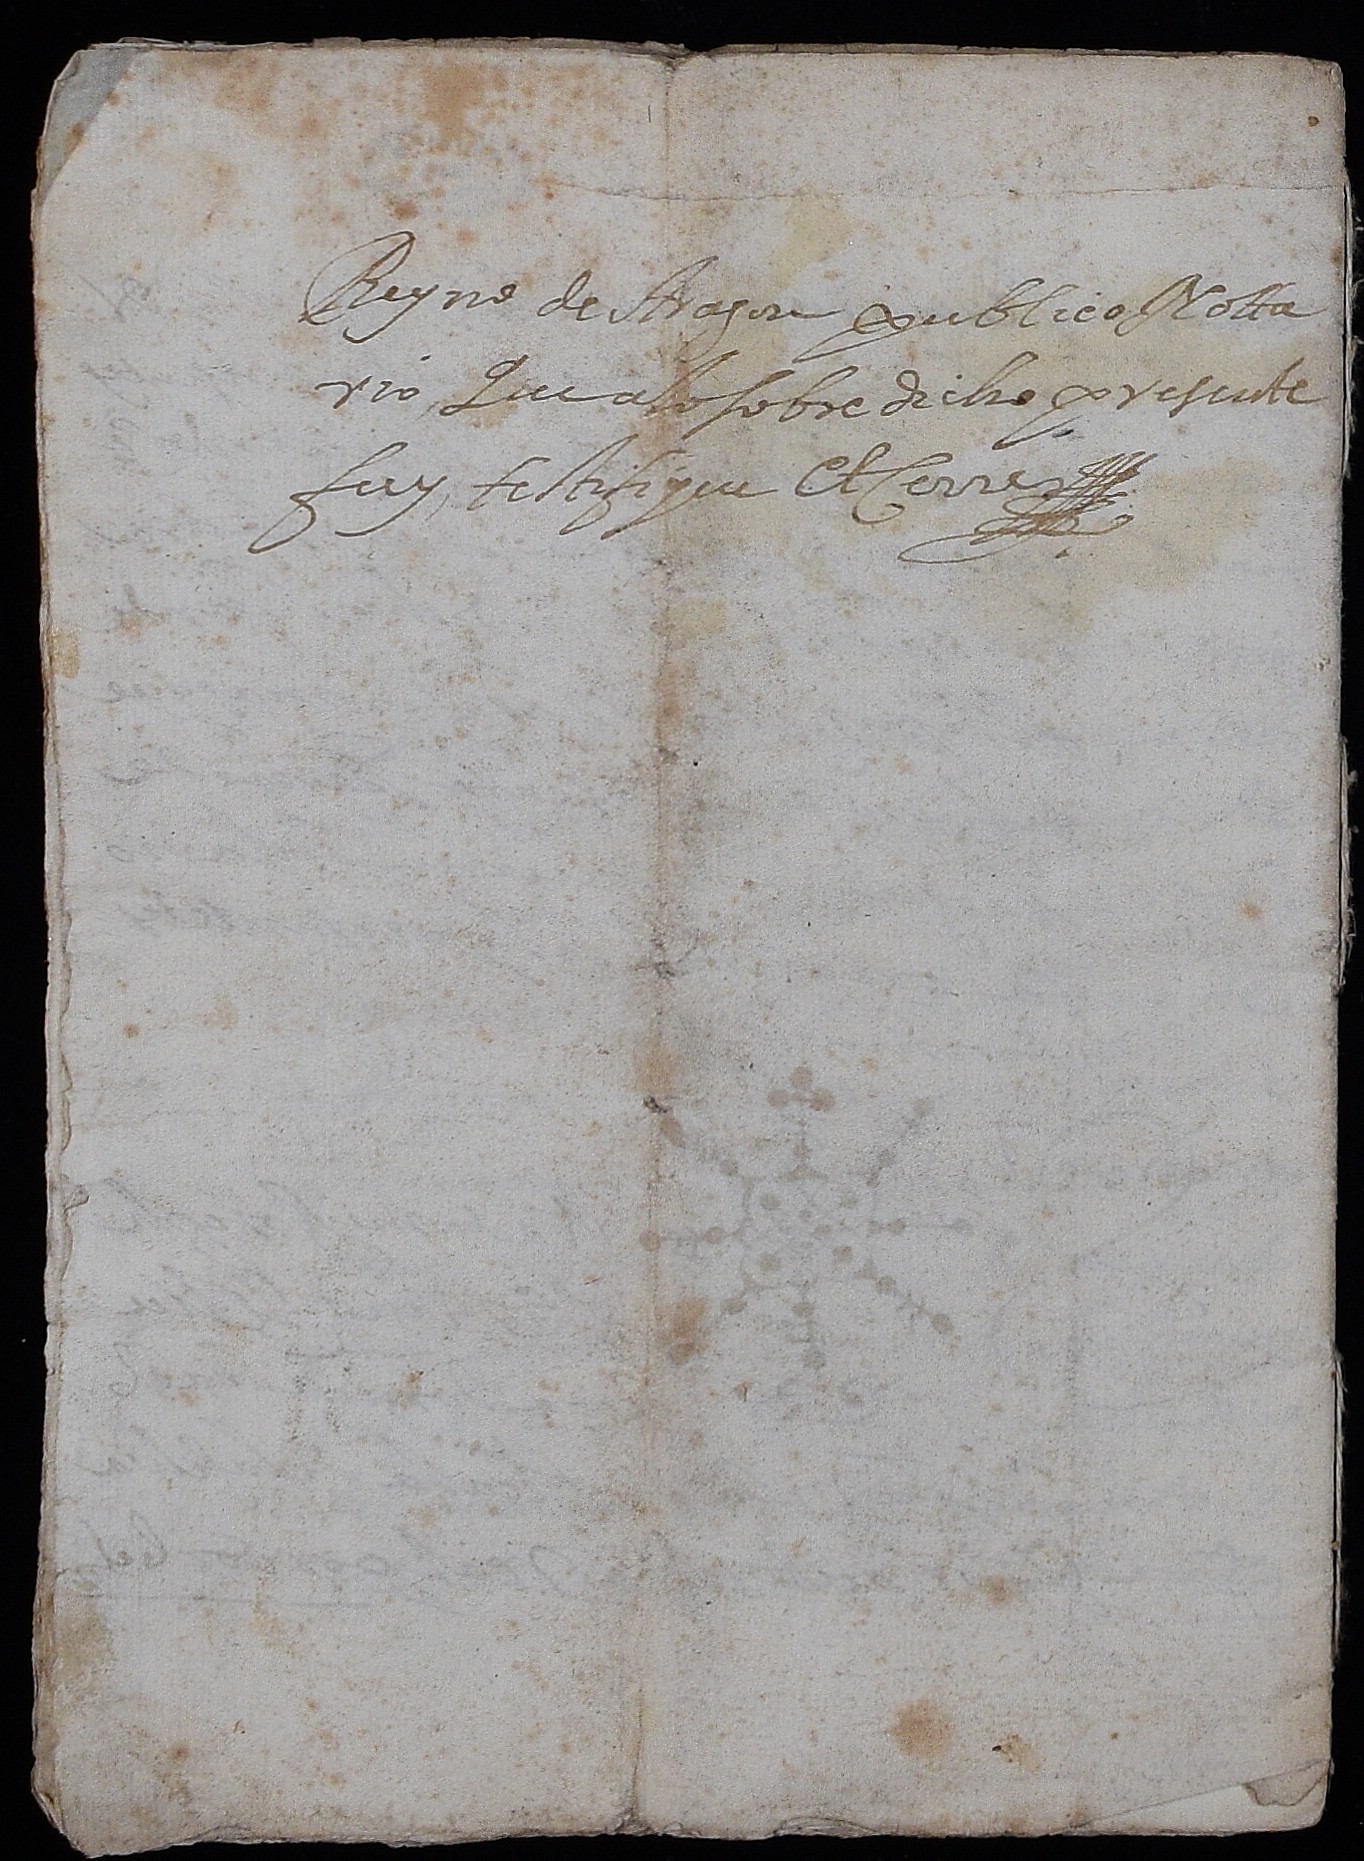 Reyno de Aragon publico Notta
rio, Que a lo sobre dicho presente
fuy, testifique Et Cerre